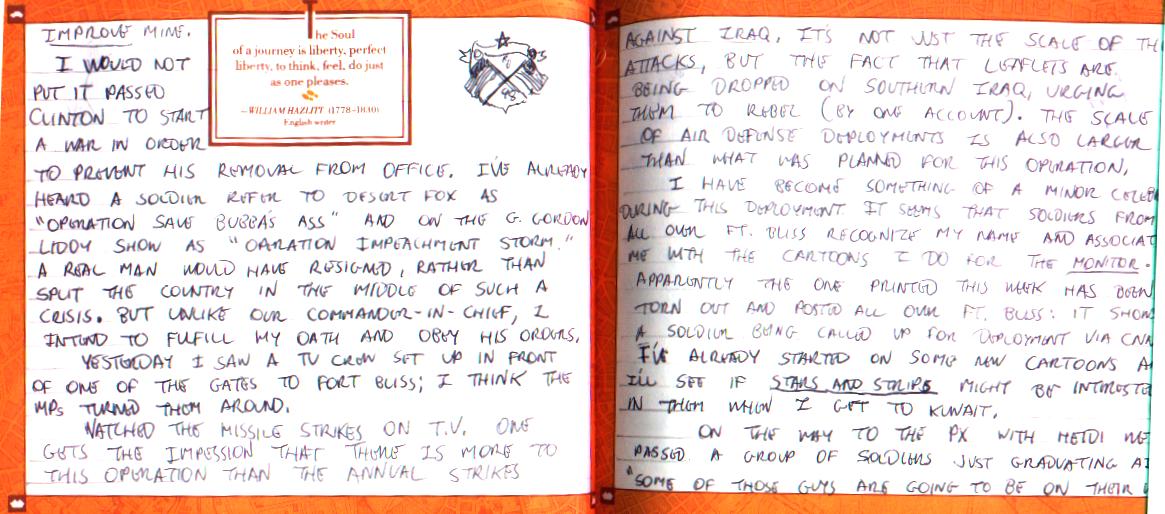 IMPROVE MINE.
I WOULD NOT
PUT IT PASSED
CLINTON TO START
A WAR IN ORDER
TO PREVENT HIS REMOVAL FROM OFFICE. I'VE ALREADY
HEARD A SOLDIER REFER TO DESERT FOX AS
"OPERATION SAVE BUBBA'S ASS" AND ON THE G. GORDON
LIDDY SHOW AS "OPERATION IMPEACHMENT STORM."
A REAL MAN WOULD HAVE RESIGNED, RATHER THAN
SPLIT THE COUNTRY IN THE MIDDLE OF SUCH A
CRISIS. BUT UNLIKE OUR COMMANDER-IN-CHIEF, I
INTEND TO FULFILL MY OATH AND OBEY HIS ORDERS.
YESTERDAY I SAW A TV CREW SET UP IN FRONT
OF ONE OF THE GATES TO FORT BLISS; I THINK THE
MPs TURNED THEM AROUND.
WATCHED THE MISSILE STRIKES ON T.V. ONE
GETS THE IMPRESSION THAT THERE IS MORE TO
THIS OPERATION THAN THE ANNUAL STRIKES
he Soul
of a journey is liberty, perfect
liberty, to think, feel, do just
as one pleases.
—WILLIAM HAZLITT (1778–1830)
English writer
AGAINST IRAQ. IT'S NOT JUST THE SCALE OF TH
ATTACKS, BUT THE FACT THAT LEAFLETS ARE
BEING DROPPED ON SOUTHERN IRAQ, URGING
THEM TO REBEL (BY ONE ACCOUNT). THE SCALE
OF AIR DEFENSE DEPLOYMENTS IS ALSO LARGER
THAN WHAT WAS PLANNED FOR THIS OPERATION.
I HAVE BECOME SOMETHING OF A MINOR CELEB
DURING THIS DEPLOYMENT. IT SEEMS THAT SOLDIERS FROM
ALL OVER FT. BLISS RECOGNIZE MY NAME AND ASSOCIAT
ME WITH THE CARTOONS I DO FOR THE MONITOR.
APPARENTLY THE ONE PRINTED THIS WEEK HAS BEEN
TORN OUT AND POSTED ALL OVER FT. BLISS: IT SHOW
A SOLDIER BEING CALLED UP FOR DEPLOYMENT VIA CNN
I'VE ALREADY STARTED ON SOME NEW CARTOONS A
I'LL SEE IF STARS AND STRIPES MIGHT BE INTERESTE
IN THEM WHEN I GET TO KUWAIT.
ON THE WAY TO THE PX WITH HEIDI WE
PASSED A GROUP OF SOLDIERS JUST GRADUATING AI
"SOME OF THOSE GUYS ARE GOING TO BE ON THEIR